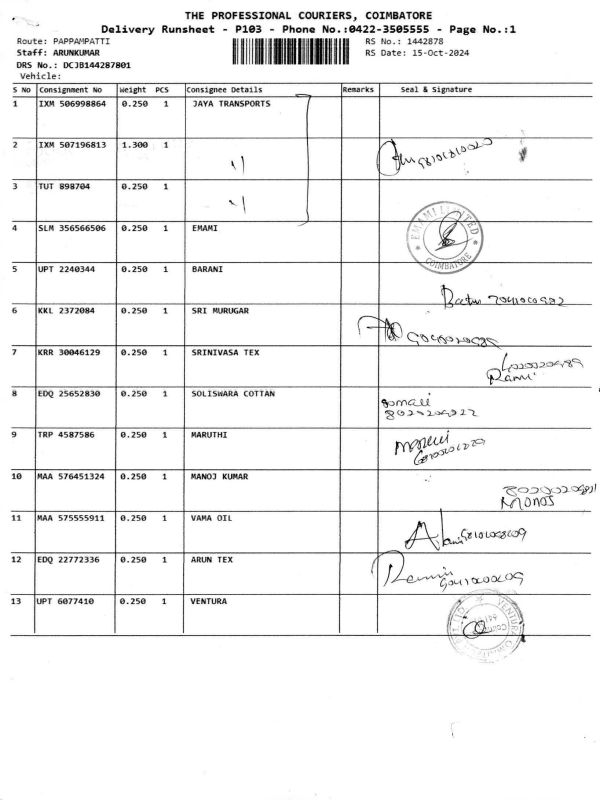 THE PROFESSIONAL COURIERS, COIMBATORE
Delivery Runsheet - P103 - Phone No.:0422-3505555 - Page No.:1
Route: PAPPAMPATTI RS No.: 1442878
Staff: ARUNKUMAR RS Date: 15-Oct-2024
DRS No.: DCJB144287801
Vehicle:
S No Consignment No Weight PCS Consignee Details Remarks Seal & Signature
1 IXM 506998864 0.250 1 JAYA TRANSPORTS
2 IXM 507196813 1.300 1
3 TUT 898704 0.250 1
4 SLM 356566506 0.250 1 EMAMI
EMAMI LIMITED
COIMBATORE
5 UPT 2240344 0.250 1 BARANI
6 KKL 2372084 0.250 1 SRI MURUGAR
7 KRR 30046129 0.250 1 SRINIVASA TEX
8 EDQ 25652830 0.250 1 SOLISWARA COTTAN
9 TRP 4587586 0.250 1 MARUTHI
10 MAA 576451324 0.250 1 MANOJ KUMAR
11 MAA 575555911 0.250 1 VAMA OIL
12 EDQ 22772336 0.250 1 ARUN TEX
13 UPT 6077410 0.250 1 VENTURA
VENTURA